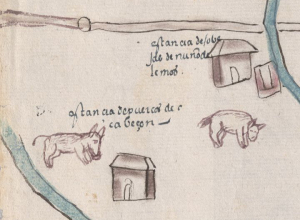 estancia de obe
jas de nuño de
lemos
estancia de puercos de r
cabeçon